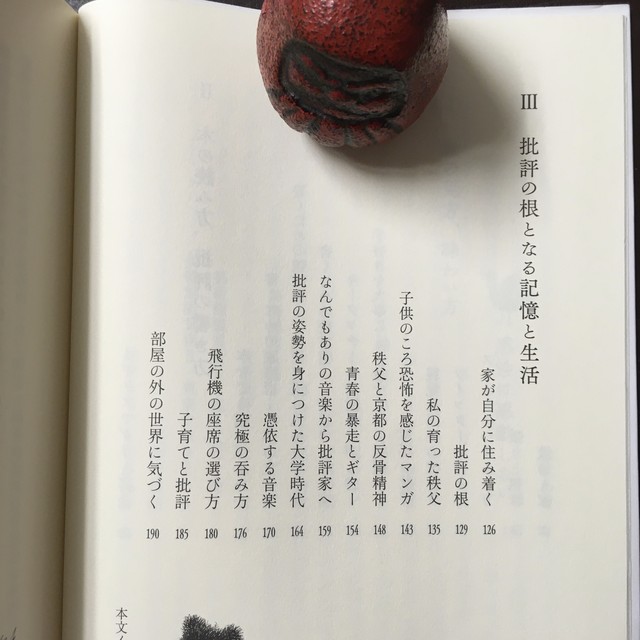 III 批評の根となる記憶と生活
家が自分に住み着く 126
批評の根 129
私の育った秩父 135
子供のころ恐怖を感じたマンガ 143
秩父と京都の反骨精神 148
青春の暴走とギター 154
なんでもありの音楽から批評家へ 159
批評の姿勢を身につけた大学時代 164
憑依する音楽 170
究極の呑み方 176
飛行機の座席の選び方 180
子育てと批評 185
部屋の外の世界に気づく 190
本文